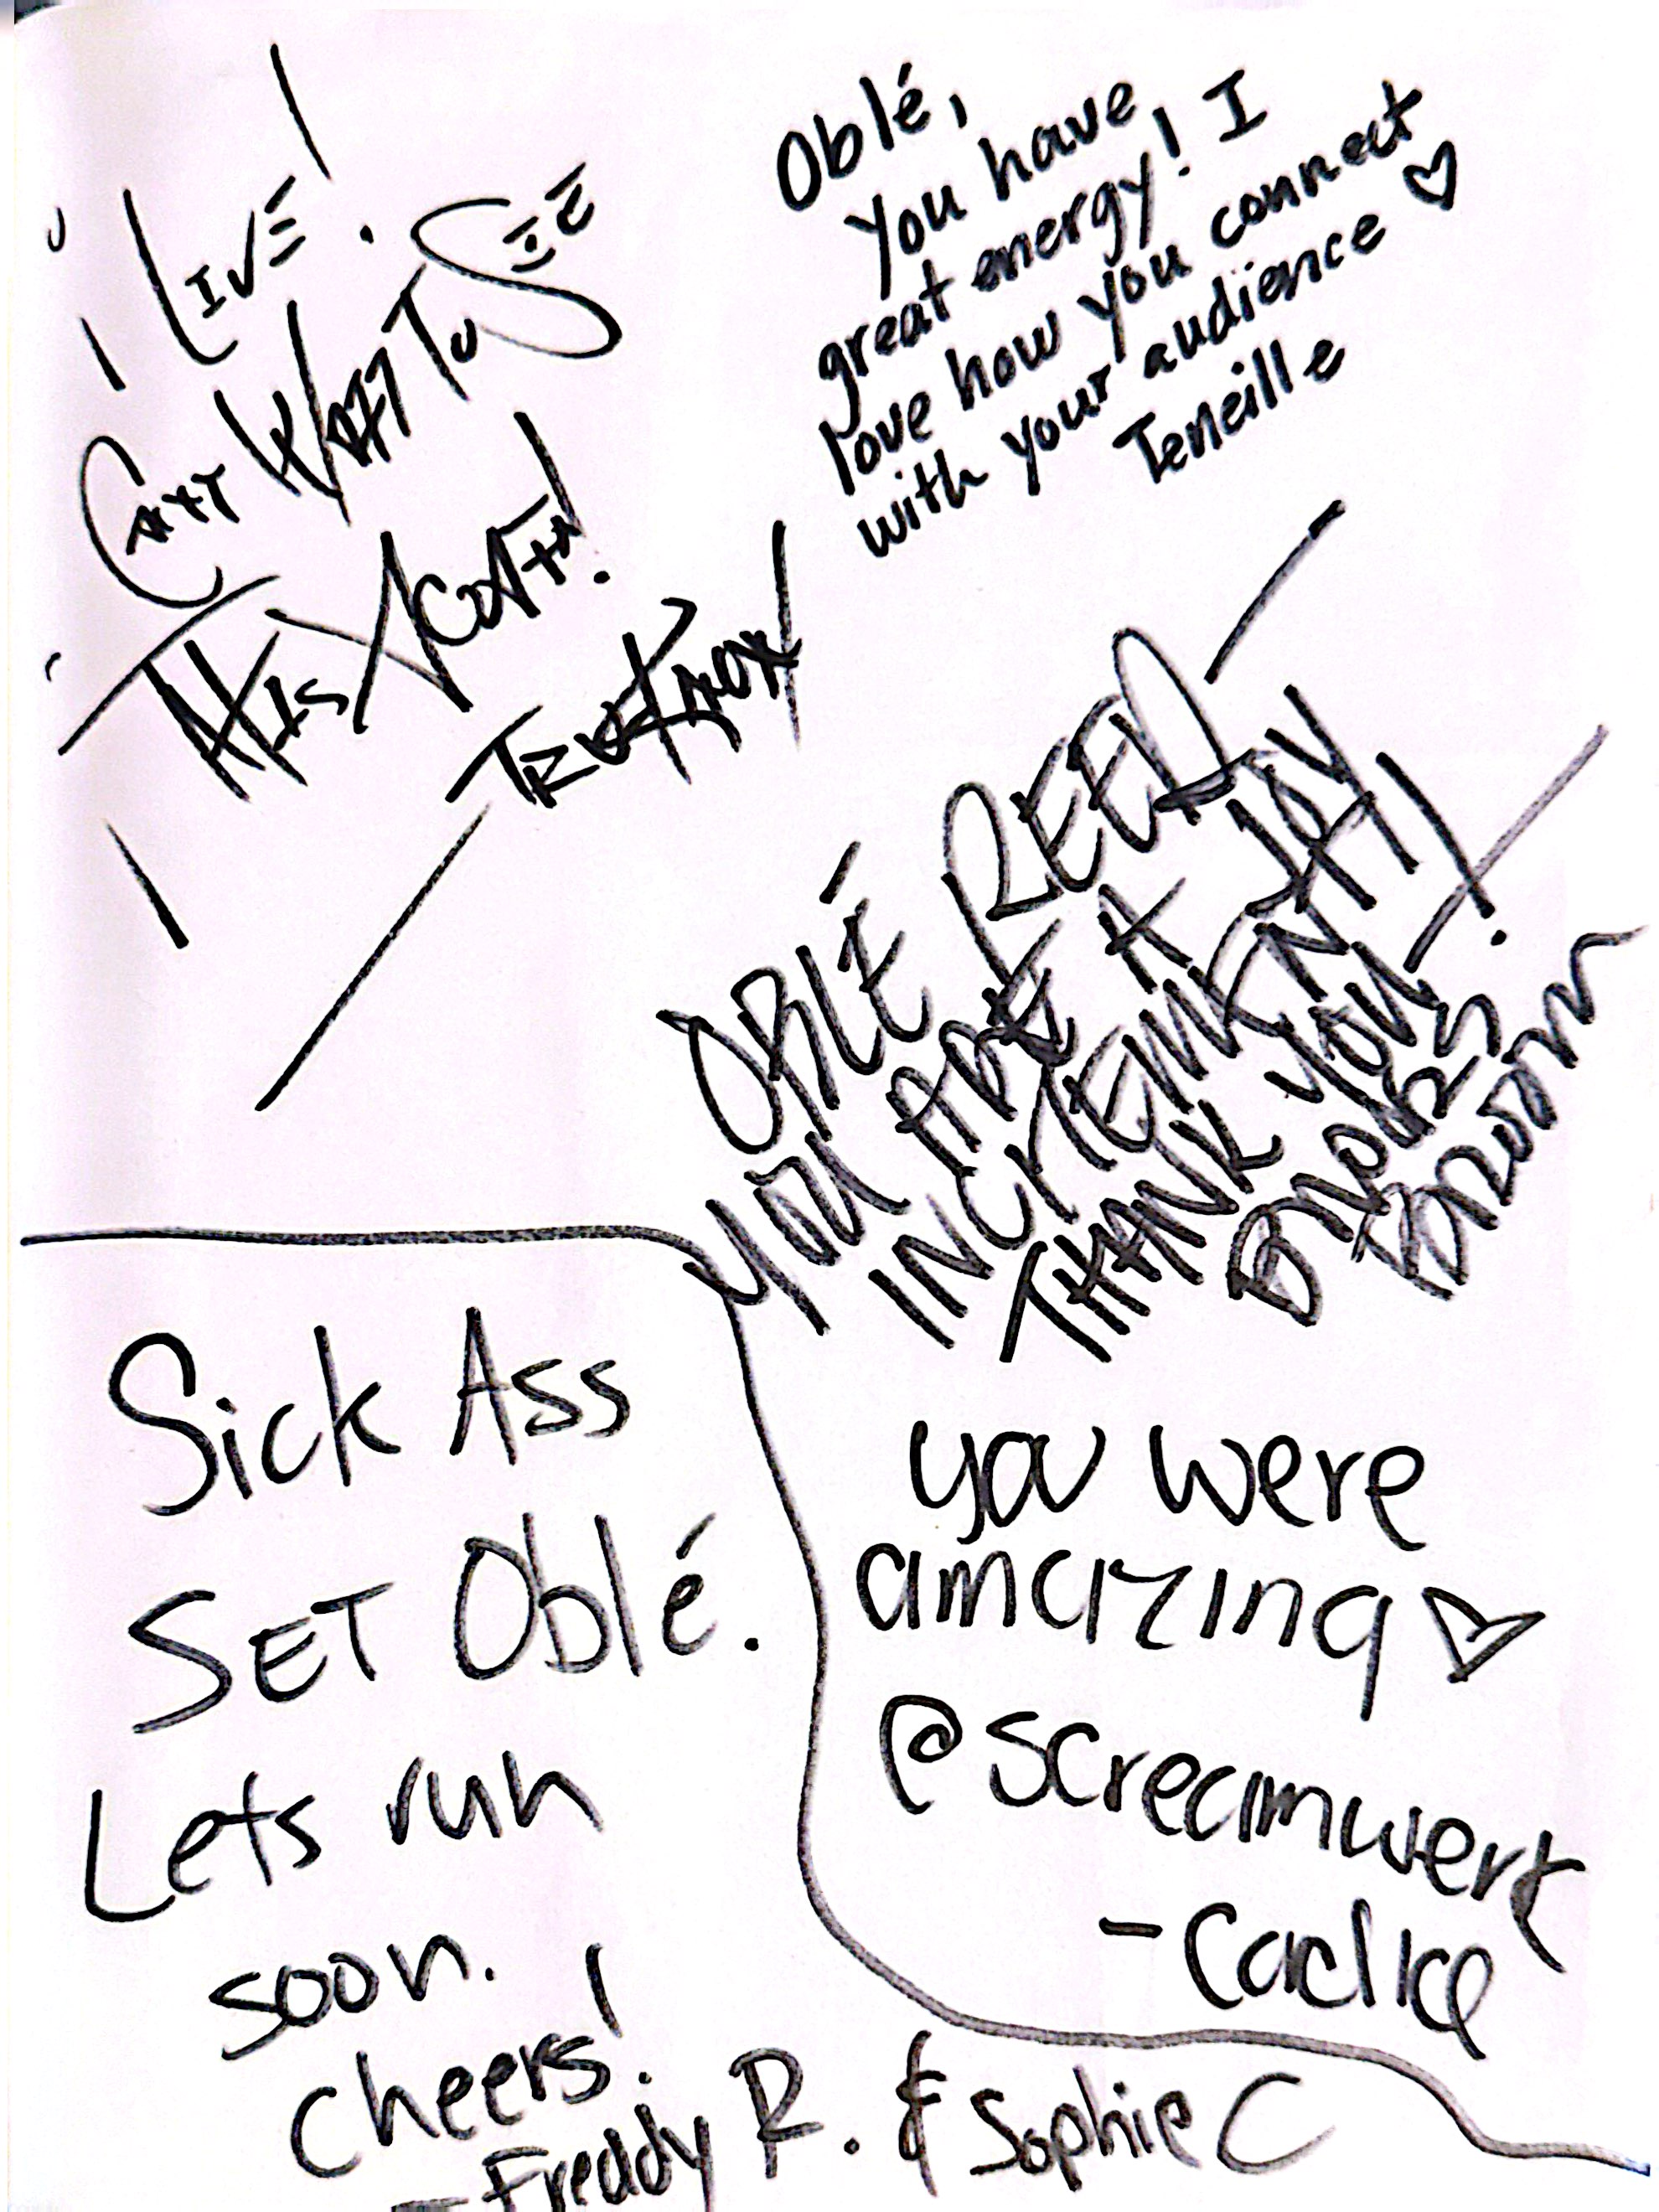 I LIVE!
CAN'T WAIT TO SEE
THIS
TRUE KNOX
Oblé,
You have
great energy! I
love how you connect
with your audience ♡
Teneille
OBLÉ REED —
YOU ARE A
JOY
THANK YOU —
Sick Ass
SET Oblé.
Lets run
soon.
Cheers!
— Freddy R. & Sophie C
you were
amazing ♡
@screamwerk